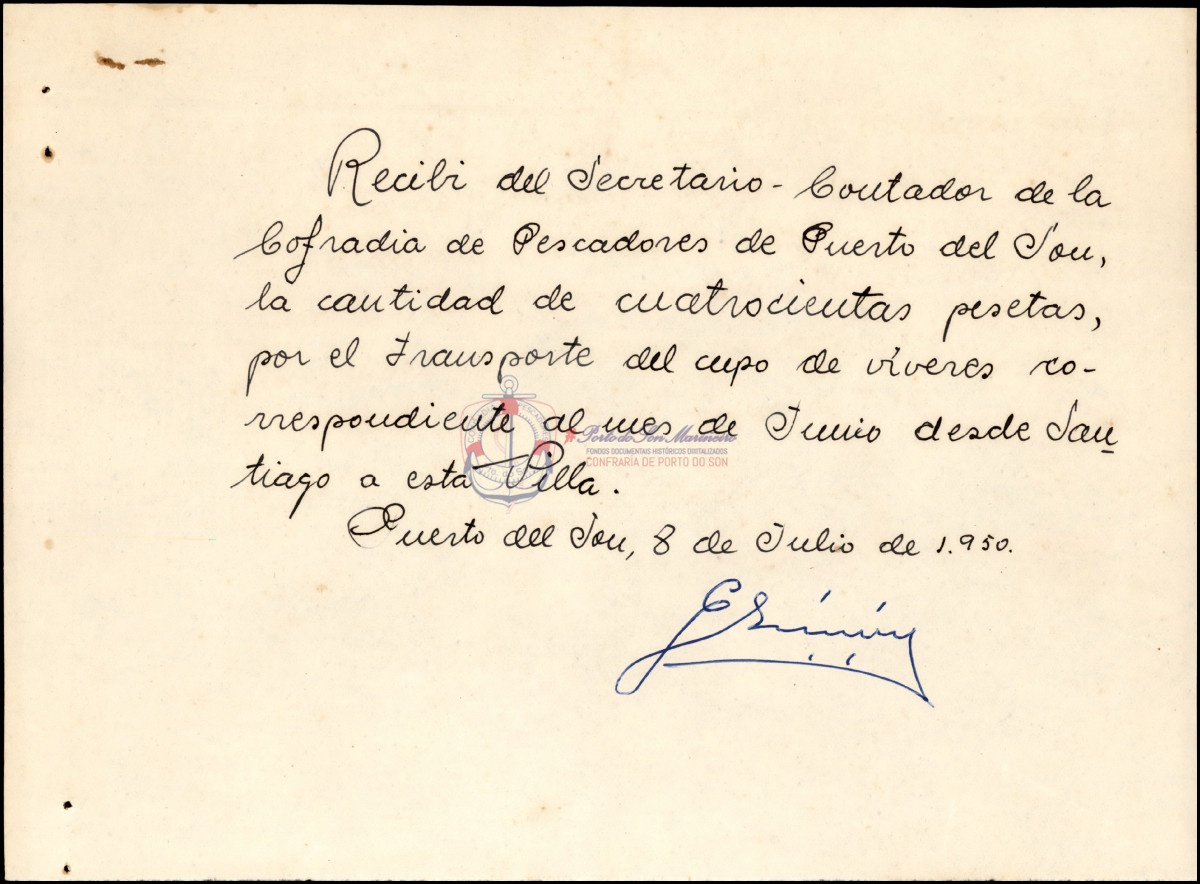 Recibi del Secretario-Contador de la
Cofradia de Pescadores de Puerto del Son,
la cantidad de cuatrocientas pesetas,
por el Transporte del cupo de víveres co-
rrespondiente al mes de Junio desde San
tiago a esta Villa.
Puerto del Son, 8 de Julio de 1.950.
#Porto do Son Marineiro
FONDOS DOCUMENTAIS HISTÓRICOS DIXITALIZADOS
CONFRARÍA DE PORTO DO SON